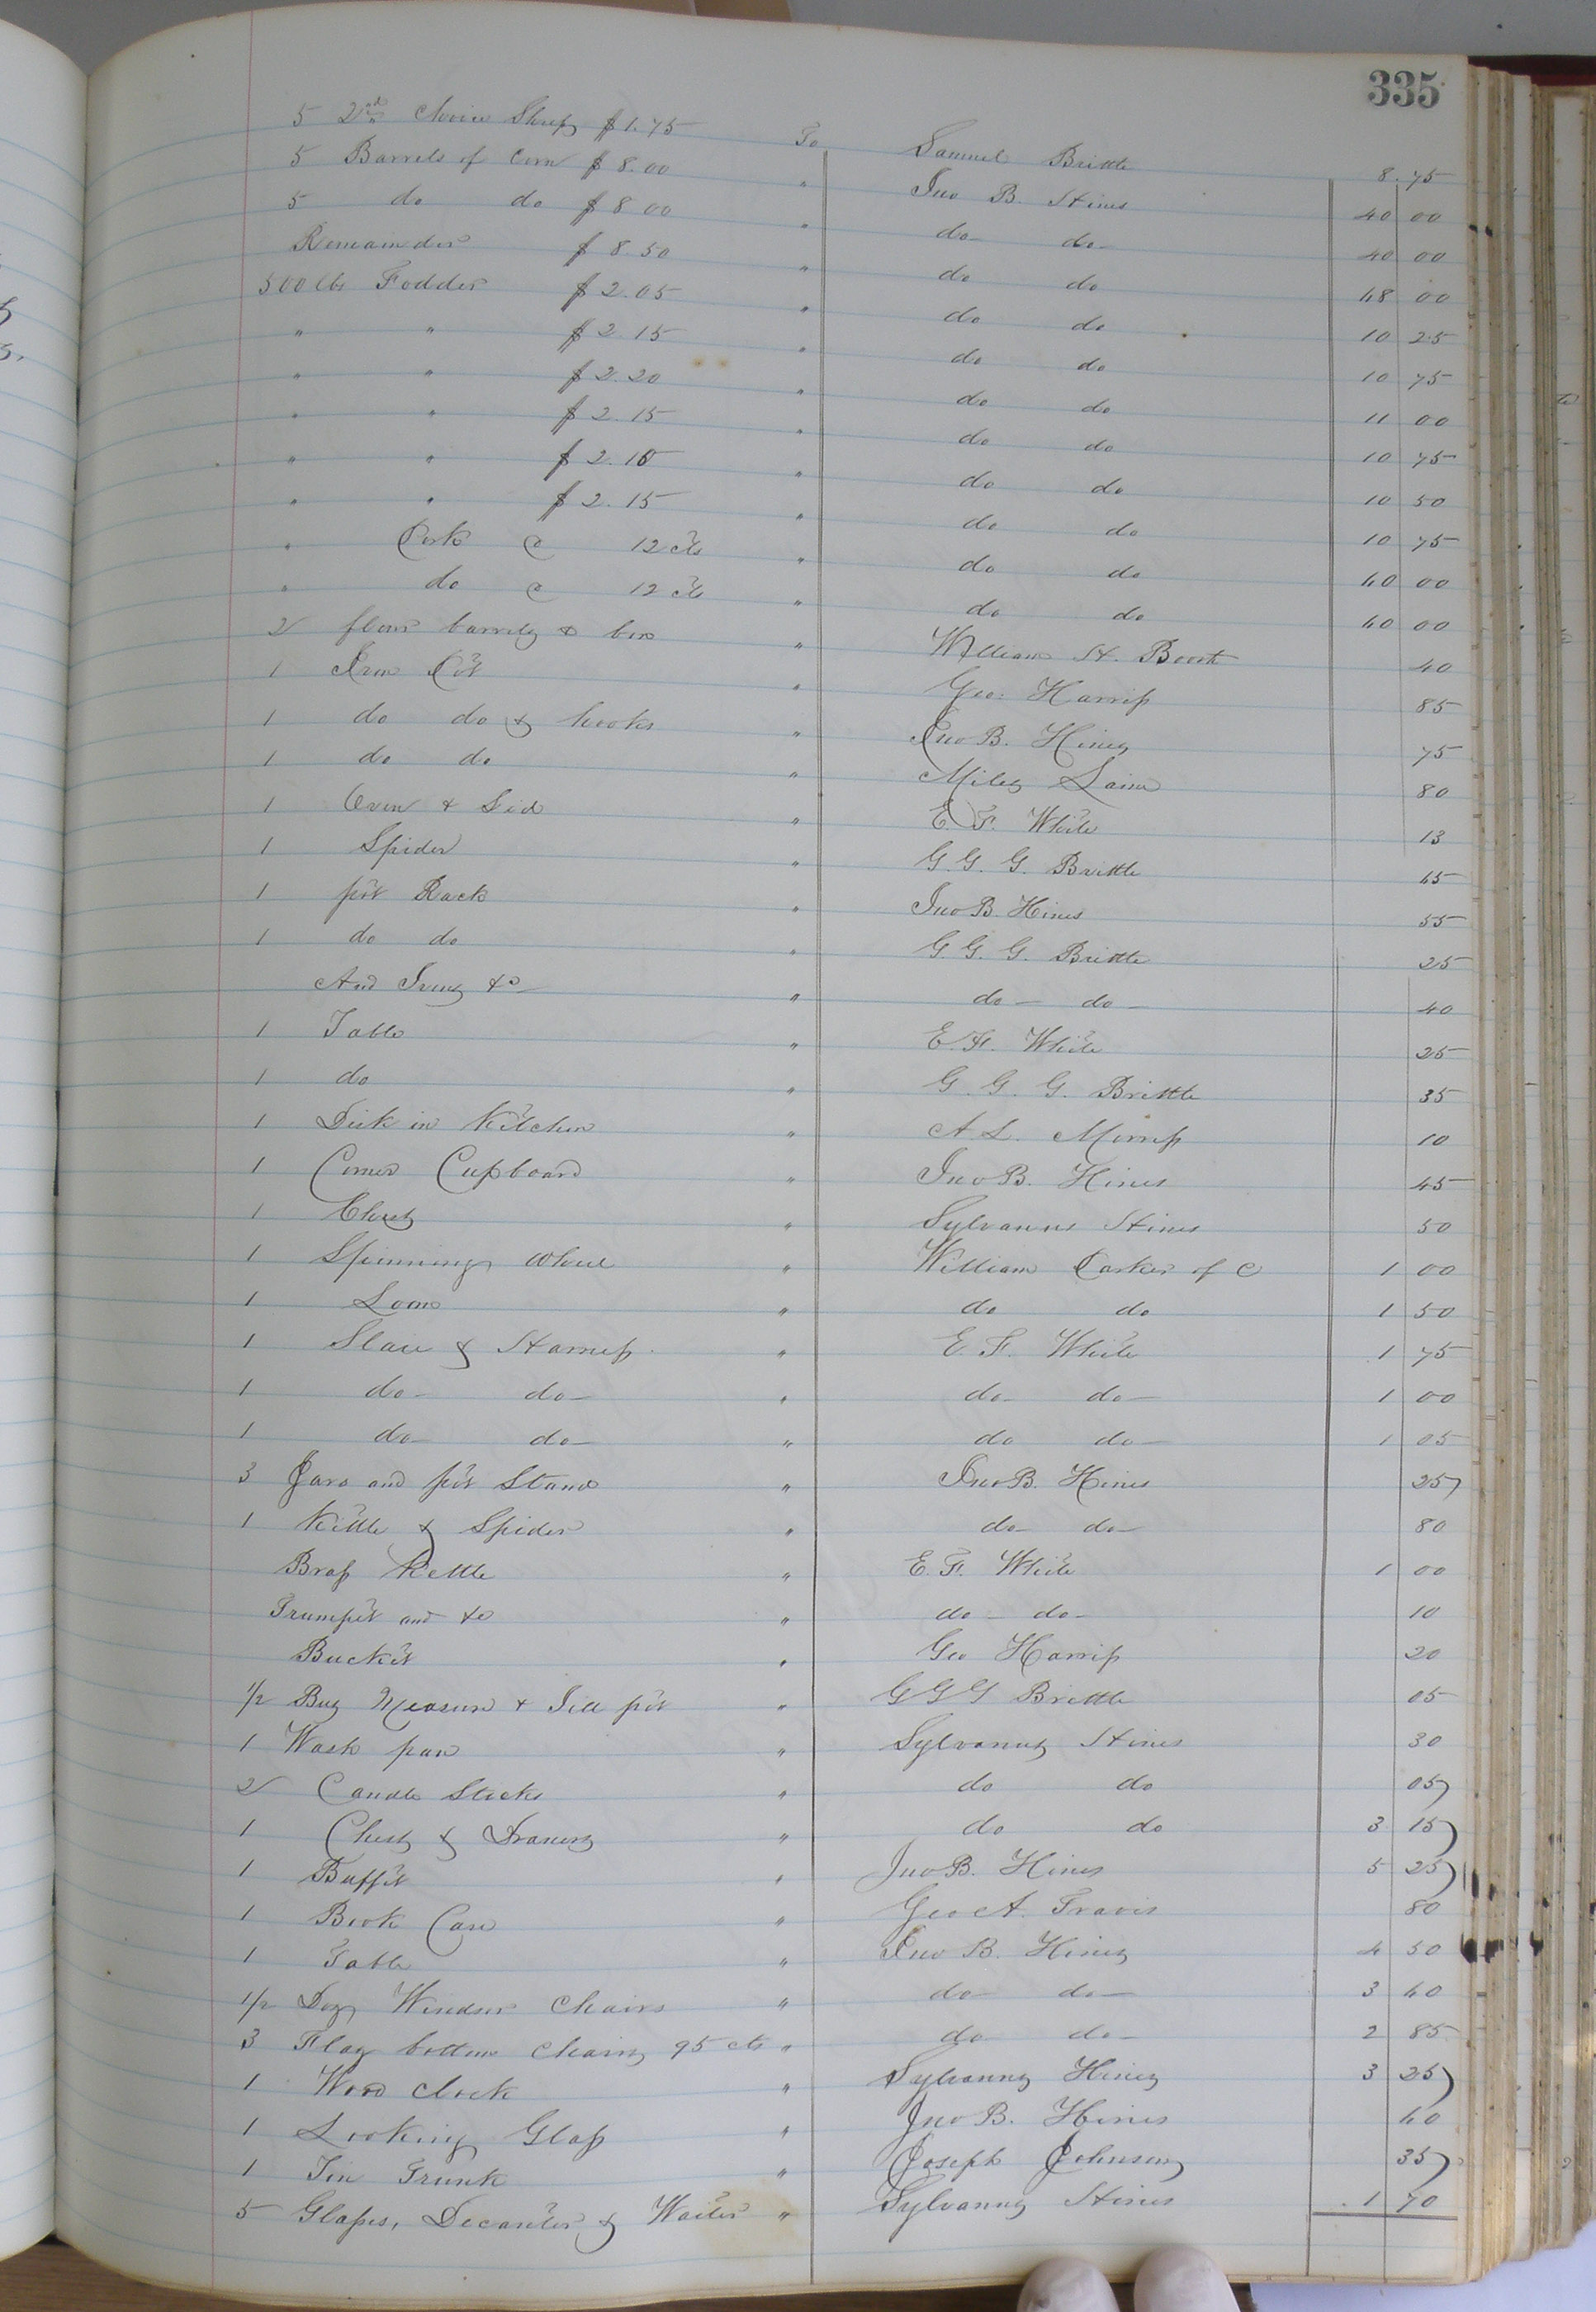 335
5 2nd Choice Sheep $1.75 To Samuel Brittle 8.75
5 Barrels of Corn $8.00 " Jno B. Hines 40 00
5 do do $8 00 " do do 40 00
Remainder $8 50 " do do 48 00
500 lbs Fodder $2.05 " do do 10 25
" " $2.15 " do do 10 75
" " $2.20 " do do 11 00
" " $2.15 " do do 10 75
" " $2.10 " do do 10 50
" " $2.15 " do do 10 75
" Pork @ 12 cts " do do 60 00
" do @ 12 cts " do do 60 00
2 flour barrels & box " William H. Booth 40
1 Iron Pot " Geo. Harriss 85
1 do do & hooks " Jno B. Hines 75
1 do do " Miles Laine 80
1 Oven & Lid " E. F. White 13
1 Spider " G. G. G. Brittle 45
1 pot Rack " Jno B. Hines 55
1 do do " G. G. G. Brittle 25
And Irons &c " do do 40
1 Table " E. F. White 25
1 do " G. G. G. Brittle 35
1 Desk in Kitchen " A. L. Morriss 10
1 Corner Cupboard " Jno B. Hines 45
1 Chest " Sylvanus Hines 50
1 Spinning wheel " William Parker of C 1 00
1 Loom " do do 1 50
1 Slaie & Harness " E. F. White 1 75
1 do do " do do 1 00
1 do do " do do 1 05
3 Jars and pot Stand " Jno B. Hines 25
1 Kittle & Spider " do do 80
Brass Kettle " E. F. White 1 00
Trumpet and &c " do do 10
Bucket " Geo Harriss 20
1/2 Bus Measure & Till pot " G G G Brittle 05
1 Wash pan " Sylvanus Hines 30
2 Candle Sticks " do do 05
1 Chest & Drawers " do do 3 15
1 Buffet " Jno B. Hines 5 25
1 Book Case " Geo A. Travis 80
1 Table " Jno B. Hines 4 50
1/2 Doz Windsor Chairs " do do 3 60
3 Flag bottom Chairs 95 cts " do do 2 85
1 Wood Clock " Sylvanus Hines 3 25
1 Looking Glass " Jno B. Hines 60
1 Tin Trunk " Joseph Johnson 35
5 Glasses, Decanter & Waiter " Sylvanus Hines 1 70